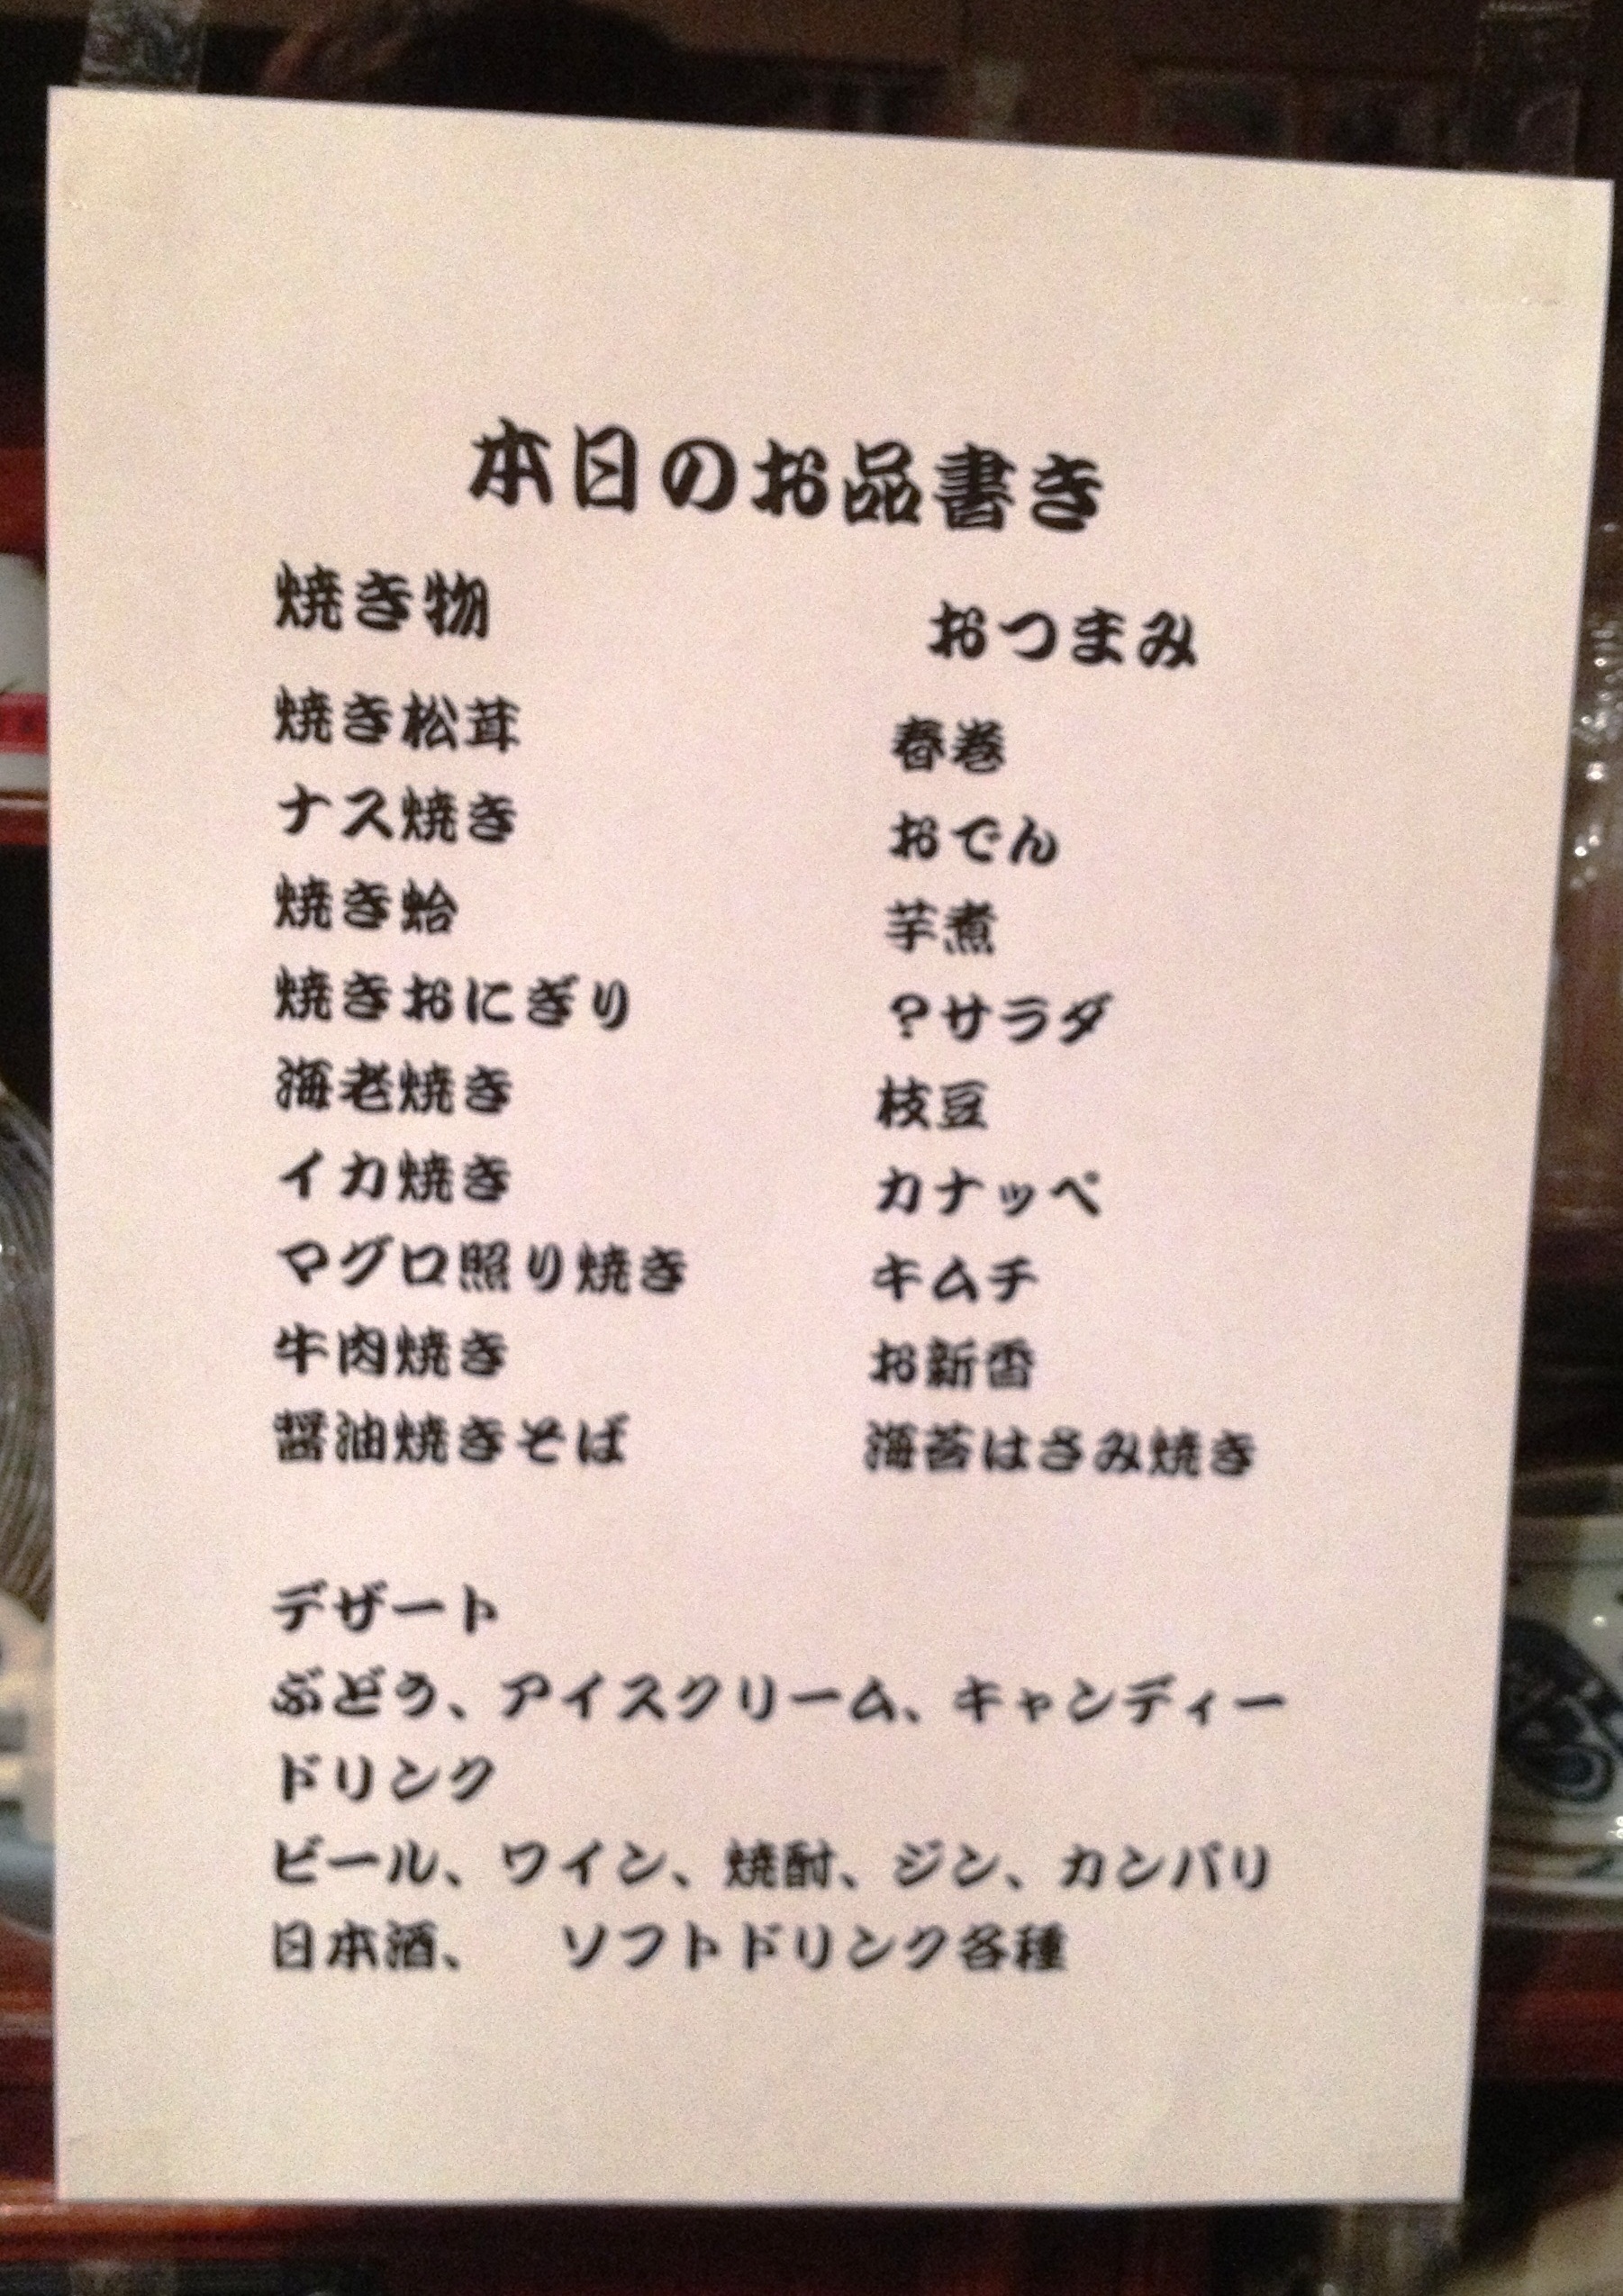 本日のお品書き
焼き物
焼き松茸
ナス焼き
焼き蛤
焼きおにぎり
海老焼き
イカ焼き
マグロ照り焼き
牛肉焼き
醤油焼きそば
おつまみ
春巻
おでん
芋煮
？サラダ
枝豆
カナッペ
キムチ
お新香
海苔はさみ焼き
デザート
ぶどう、アイスクリーム、キャンディー
ドリンク
ビール、ワイン、焼酎、ジン、カンパリ
日本酒、　ソフトドリンク各種